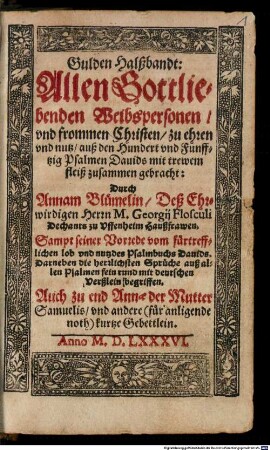 Gulden Halßbandt:
Allen Gottlie-
benden Weibspersonen /
vnd frommen Christen / zu ehren
vnd nutz / auß den Hundert vnd Fünff-
tzig Psalmen Dauids mit trewem
fleiß zusammen gebracht:
Durch
Annam Blümelin / Deß Ehr-
wirdigen Herrn M. Georgij Flosculi
Dechants zu Vffenheim Haußfrawen.
Sampt seiner Vorrede vom fürtreff-
lichen lob vnd nutz des Psalmbuchs Dauids.
Darneben die herrlichsten Sprüche auß al-
len Psalmen fein rund mit deutschen
Verßlein begriffen.
Auch zu end Anne der Mutter
Samuelis / vnd andere (für anligende
noth) kurtze Gebettlein.
Anno M. D. LXXXVI.